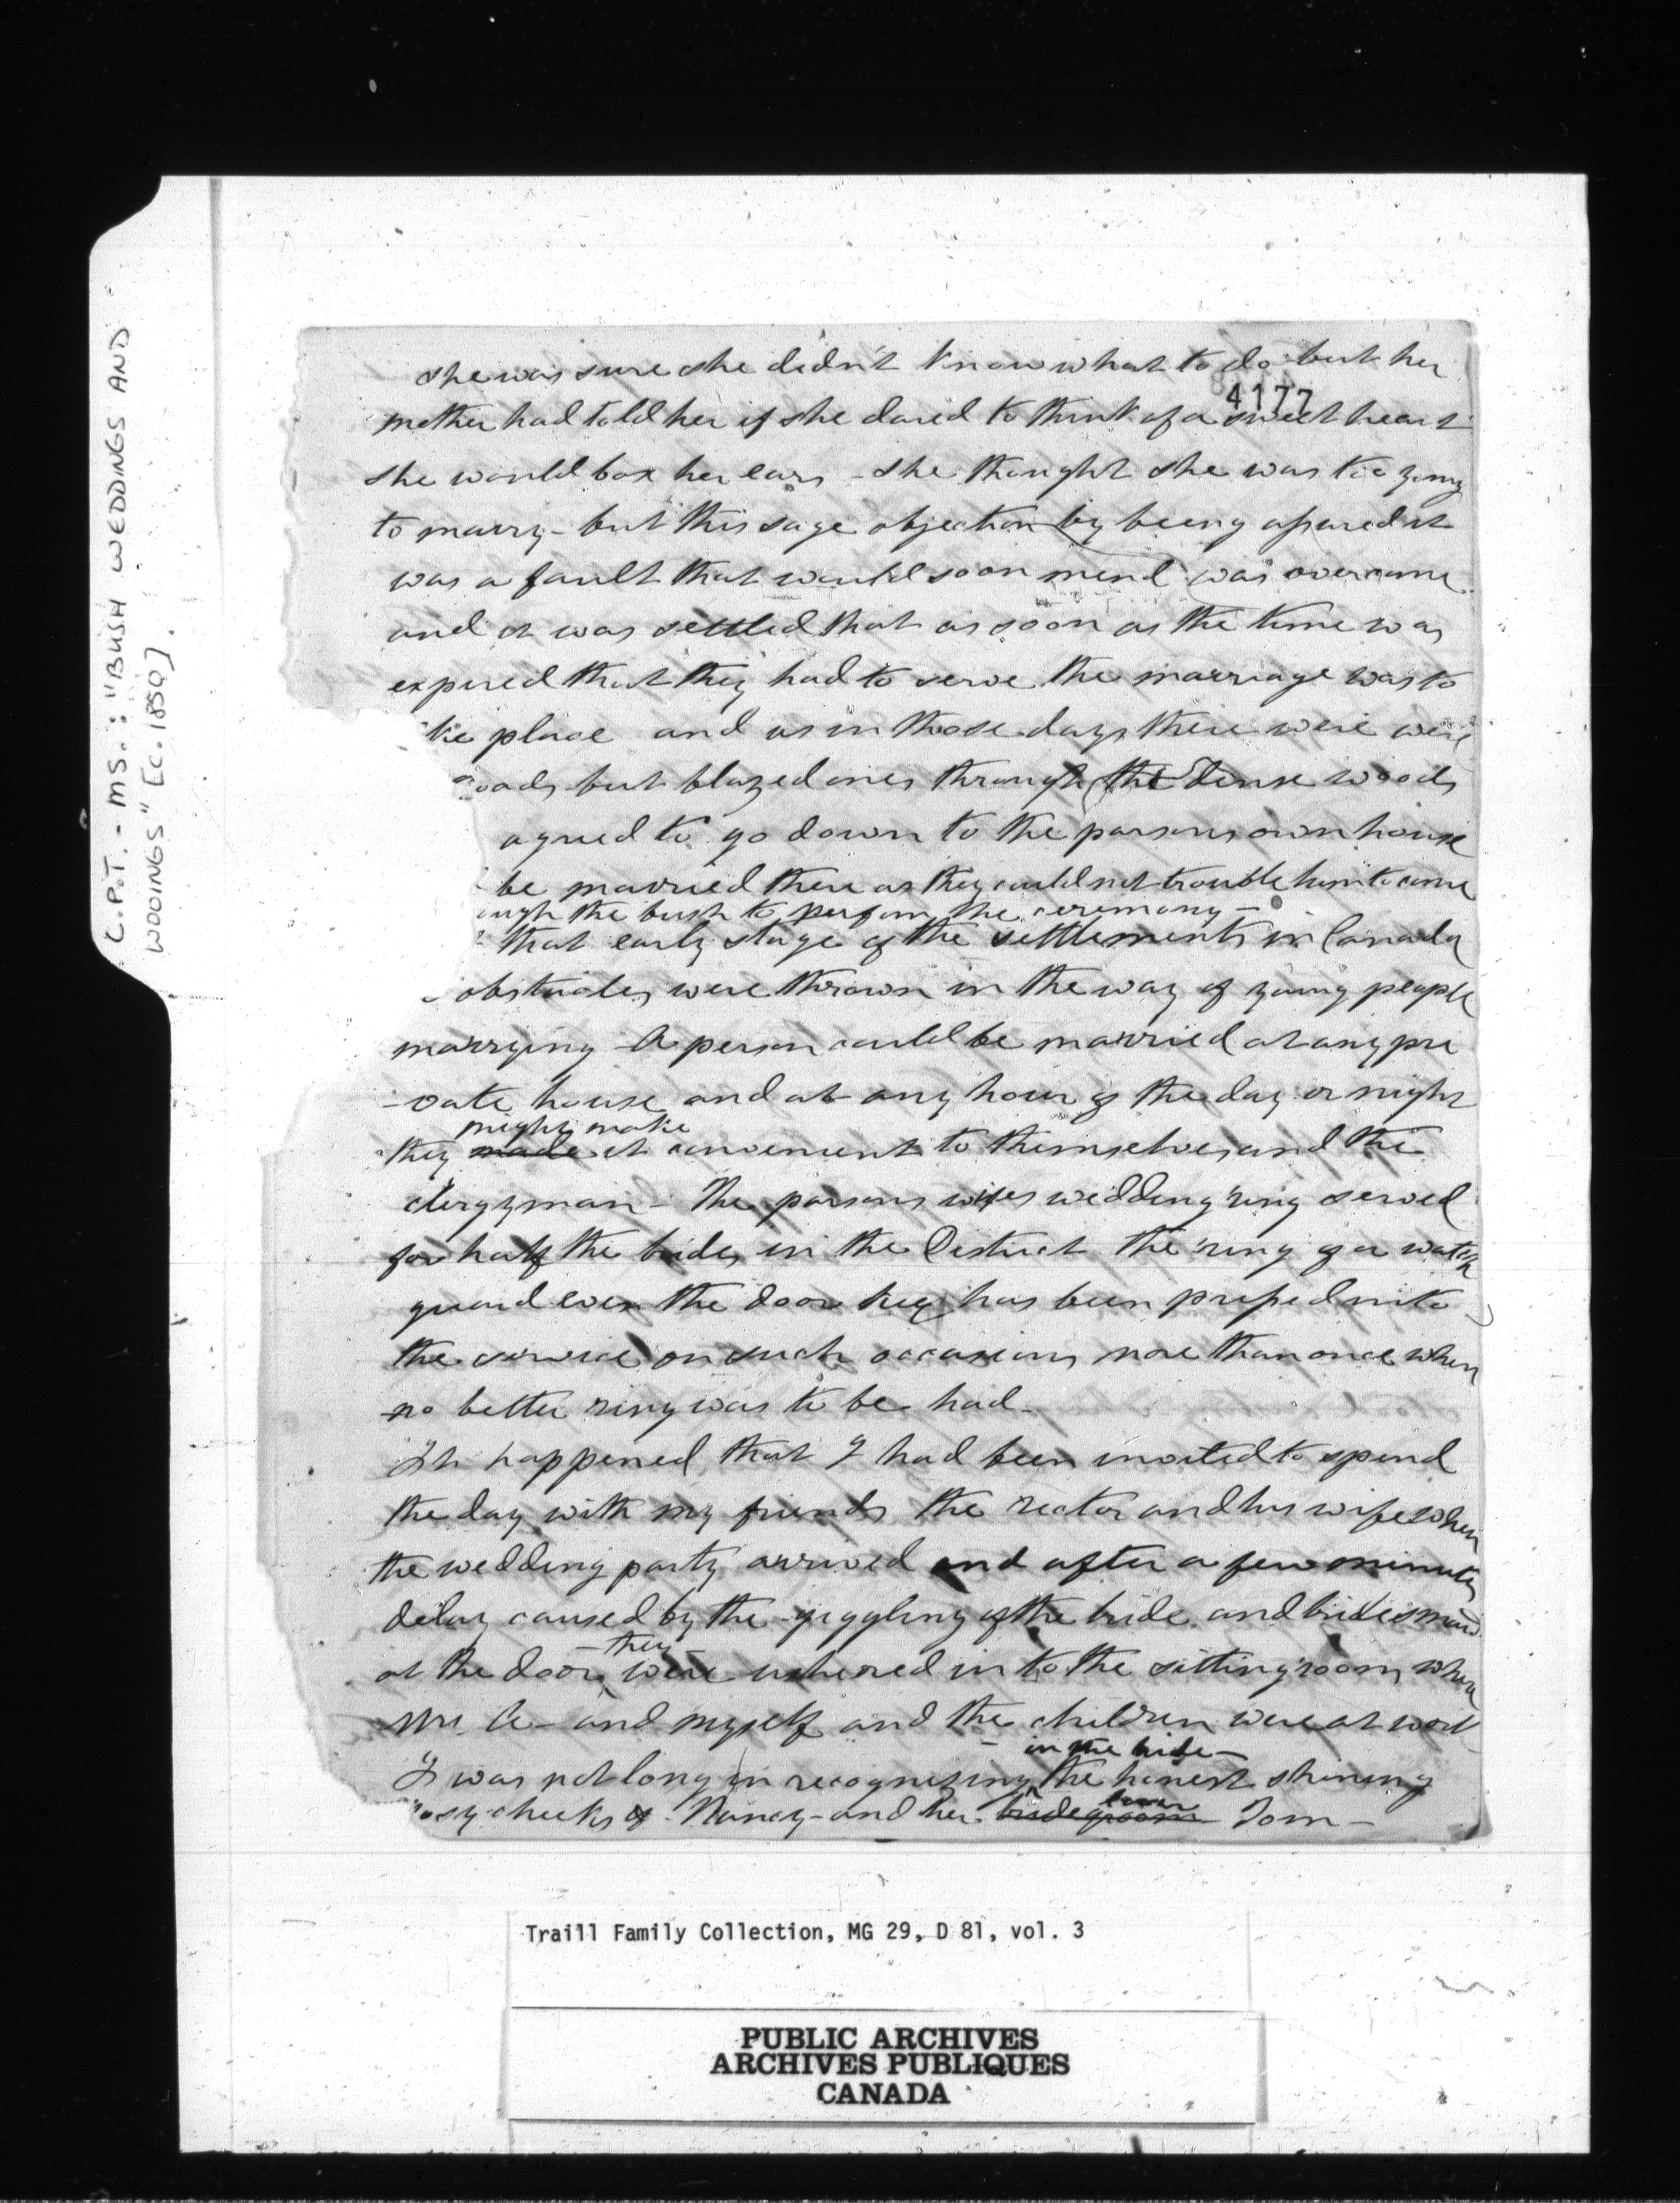 C.P.T. - MS.: "BUSH WEDDINGS AND
WOOINGS" [c. 1850].
4177
she was sure she didn't know what to do but her
mother had told her if she dared to think of a sweet heart
she would box her ears - she thought she was too young
to marry - but this sage objection by being assured it
was a fault that would soon mend was overcome
and it was settled that as soon as the time was
expired that they had to serve the marriage was to
ke place and as in those days there were were
oads but blazed ones through the dense woods
agreed to go down to the parsons own house
be married there as they could not trouble him to come
ough the bush to perform the ceremony -
that early stage of the settlements in Canada
obstacles were thrown in the way of young people
marrying - A person could be married at any pri
-vate house and at any hour of the day or night
might make
they made it convenient to themselves and the
clergyman - The parsons wifes wedding ring served
for half the brides in the District the ring of a watch
guard even the door key has been pressed into
the service on such occasions more than once when
no better ring was to be had -
It happened that I had been invited to spend
the day with my friends the rector and his wife when
the wedding party arrived and after a few minutes
delay caused by the giggling of the bride and bridesmaid
they
at the door were ushered in to the sitting room where
Mrs. A - and myself and the children were at work
in the bride -
I was not long in recognizing the honest shining
osy cheeks of Nancy - and her bridegroom Tom -
Traill Family Collection, MG 29, D 81, vol. 3
PUBLIC ARCHIVES
ARCHIVES PUBLIQUES
CANADA